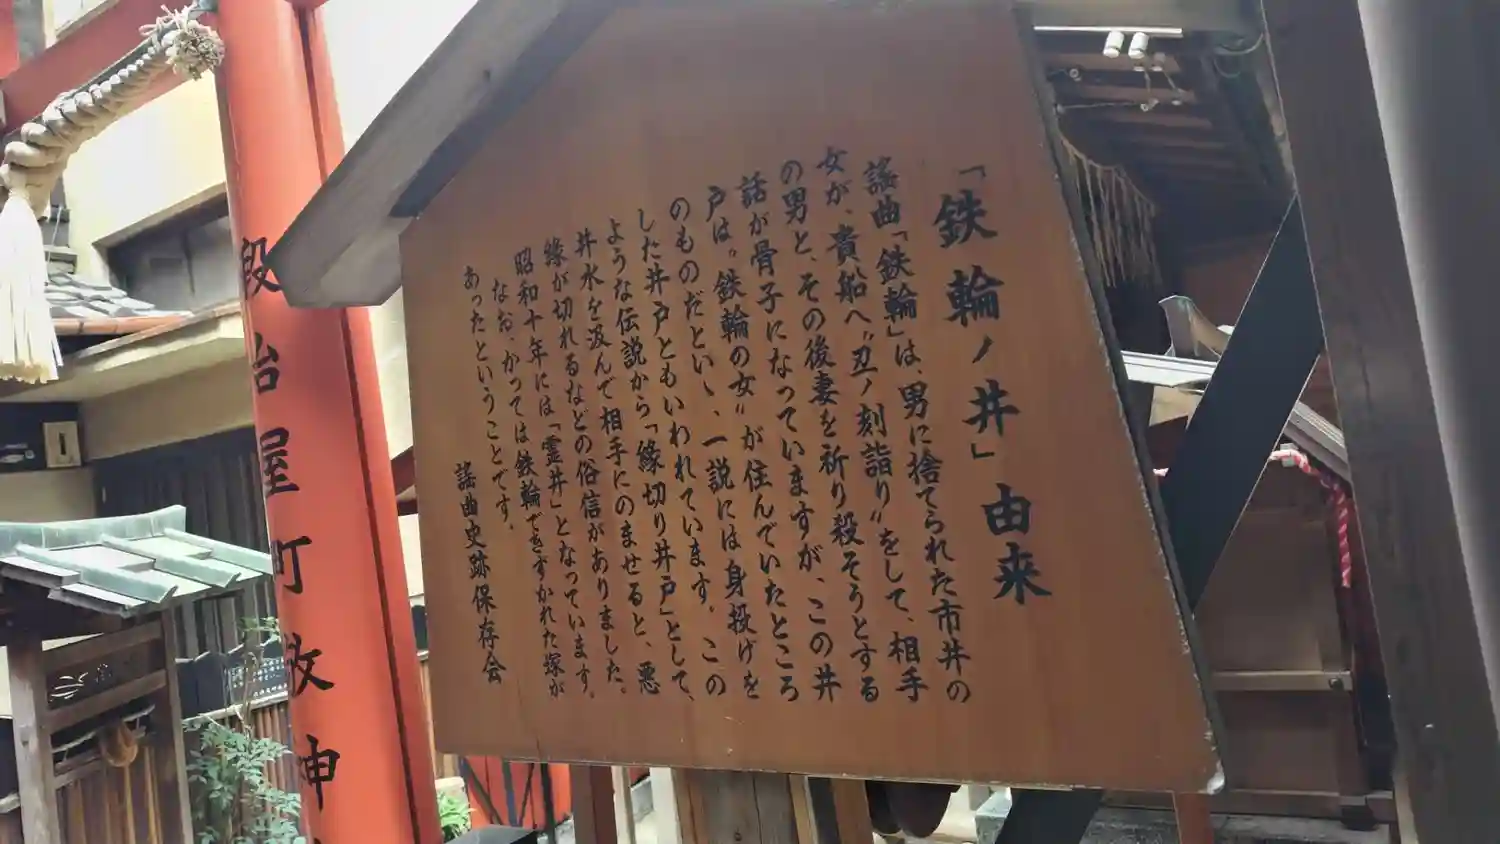 「鉄輪ノ井」由来
謡曲「鉄輪」は、男に捨てられた市井の
女が、貴船へ〝丑ノ刻詣り〟をして、相手
の男と、その後妻を祈り殺そうとする
話が骨子になっていますが、この井
戸は〝鉄輪の女〟が住んでいたところ
のものだといゝ、一説には身投げを
した井戸ともいわれています。この
ような伝説から「縁切り井戸」として、
井水を汲んで相手にのませると、悪
縁が切れるなどの俗信がありました。
昭和十年には「霊井」となっています。
なお、かつては鉄輪できずかれた塚が
あったということです。
謡曲史跡保存会
段冶屋町敬神